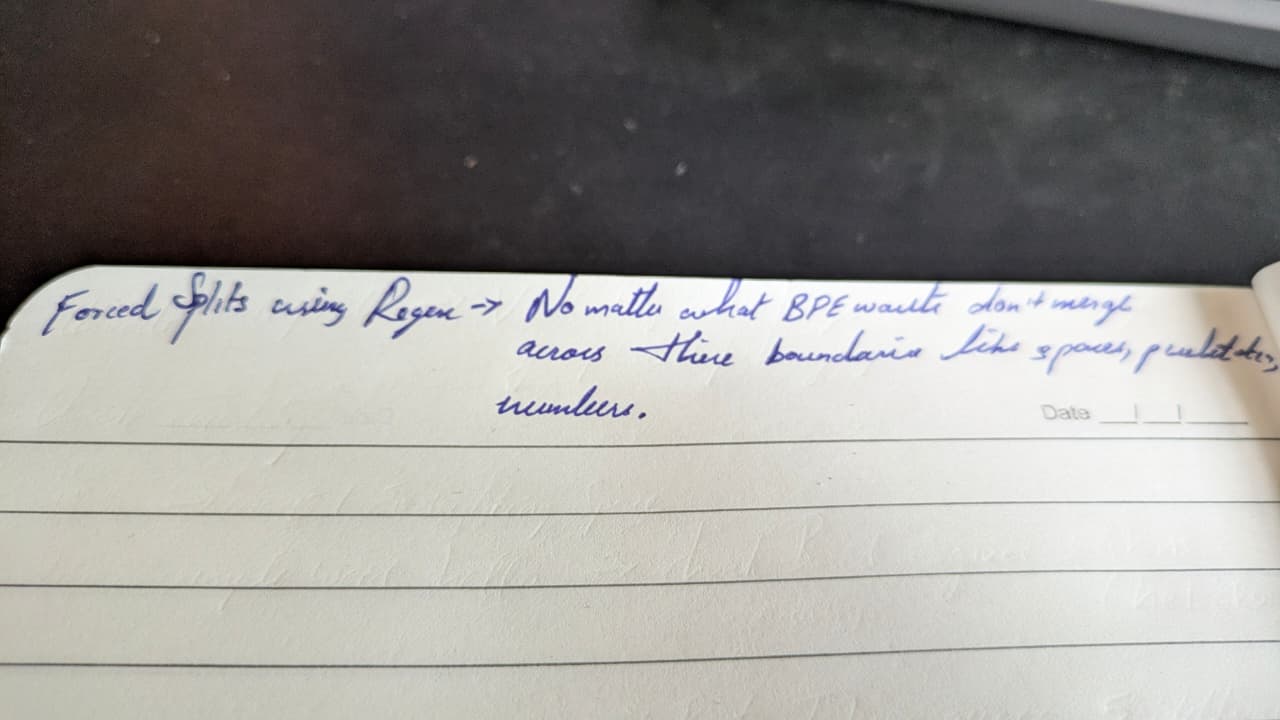 Forced Splits using Regex → No matter what BPE wants don't merge
across these boundaries like spaces, punctuation,
numbers.
Date __/__/____